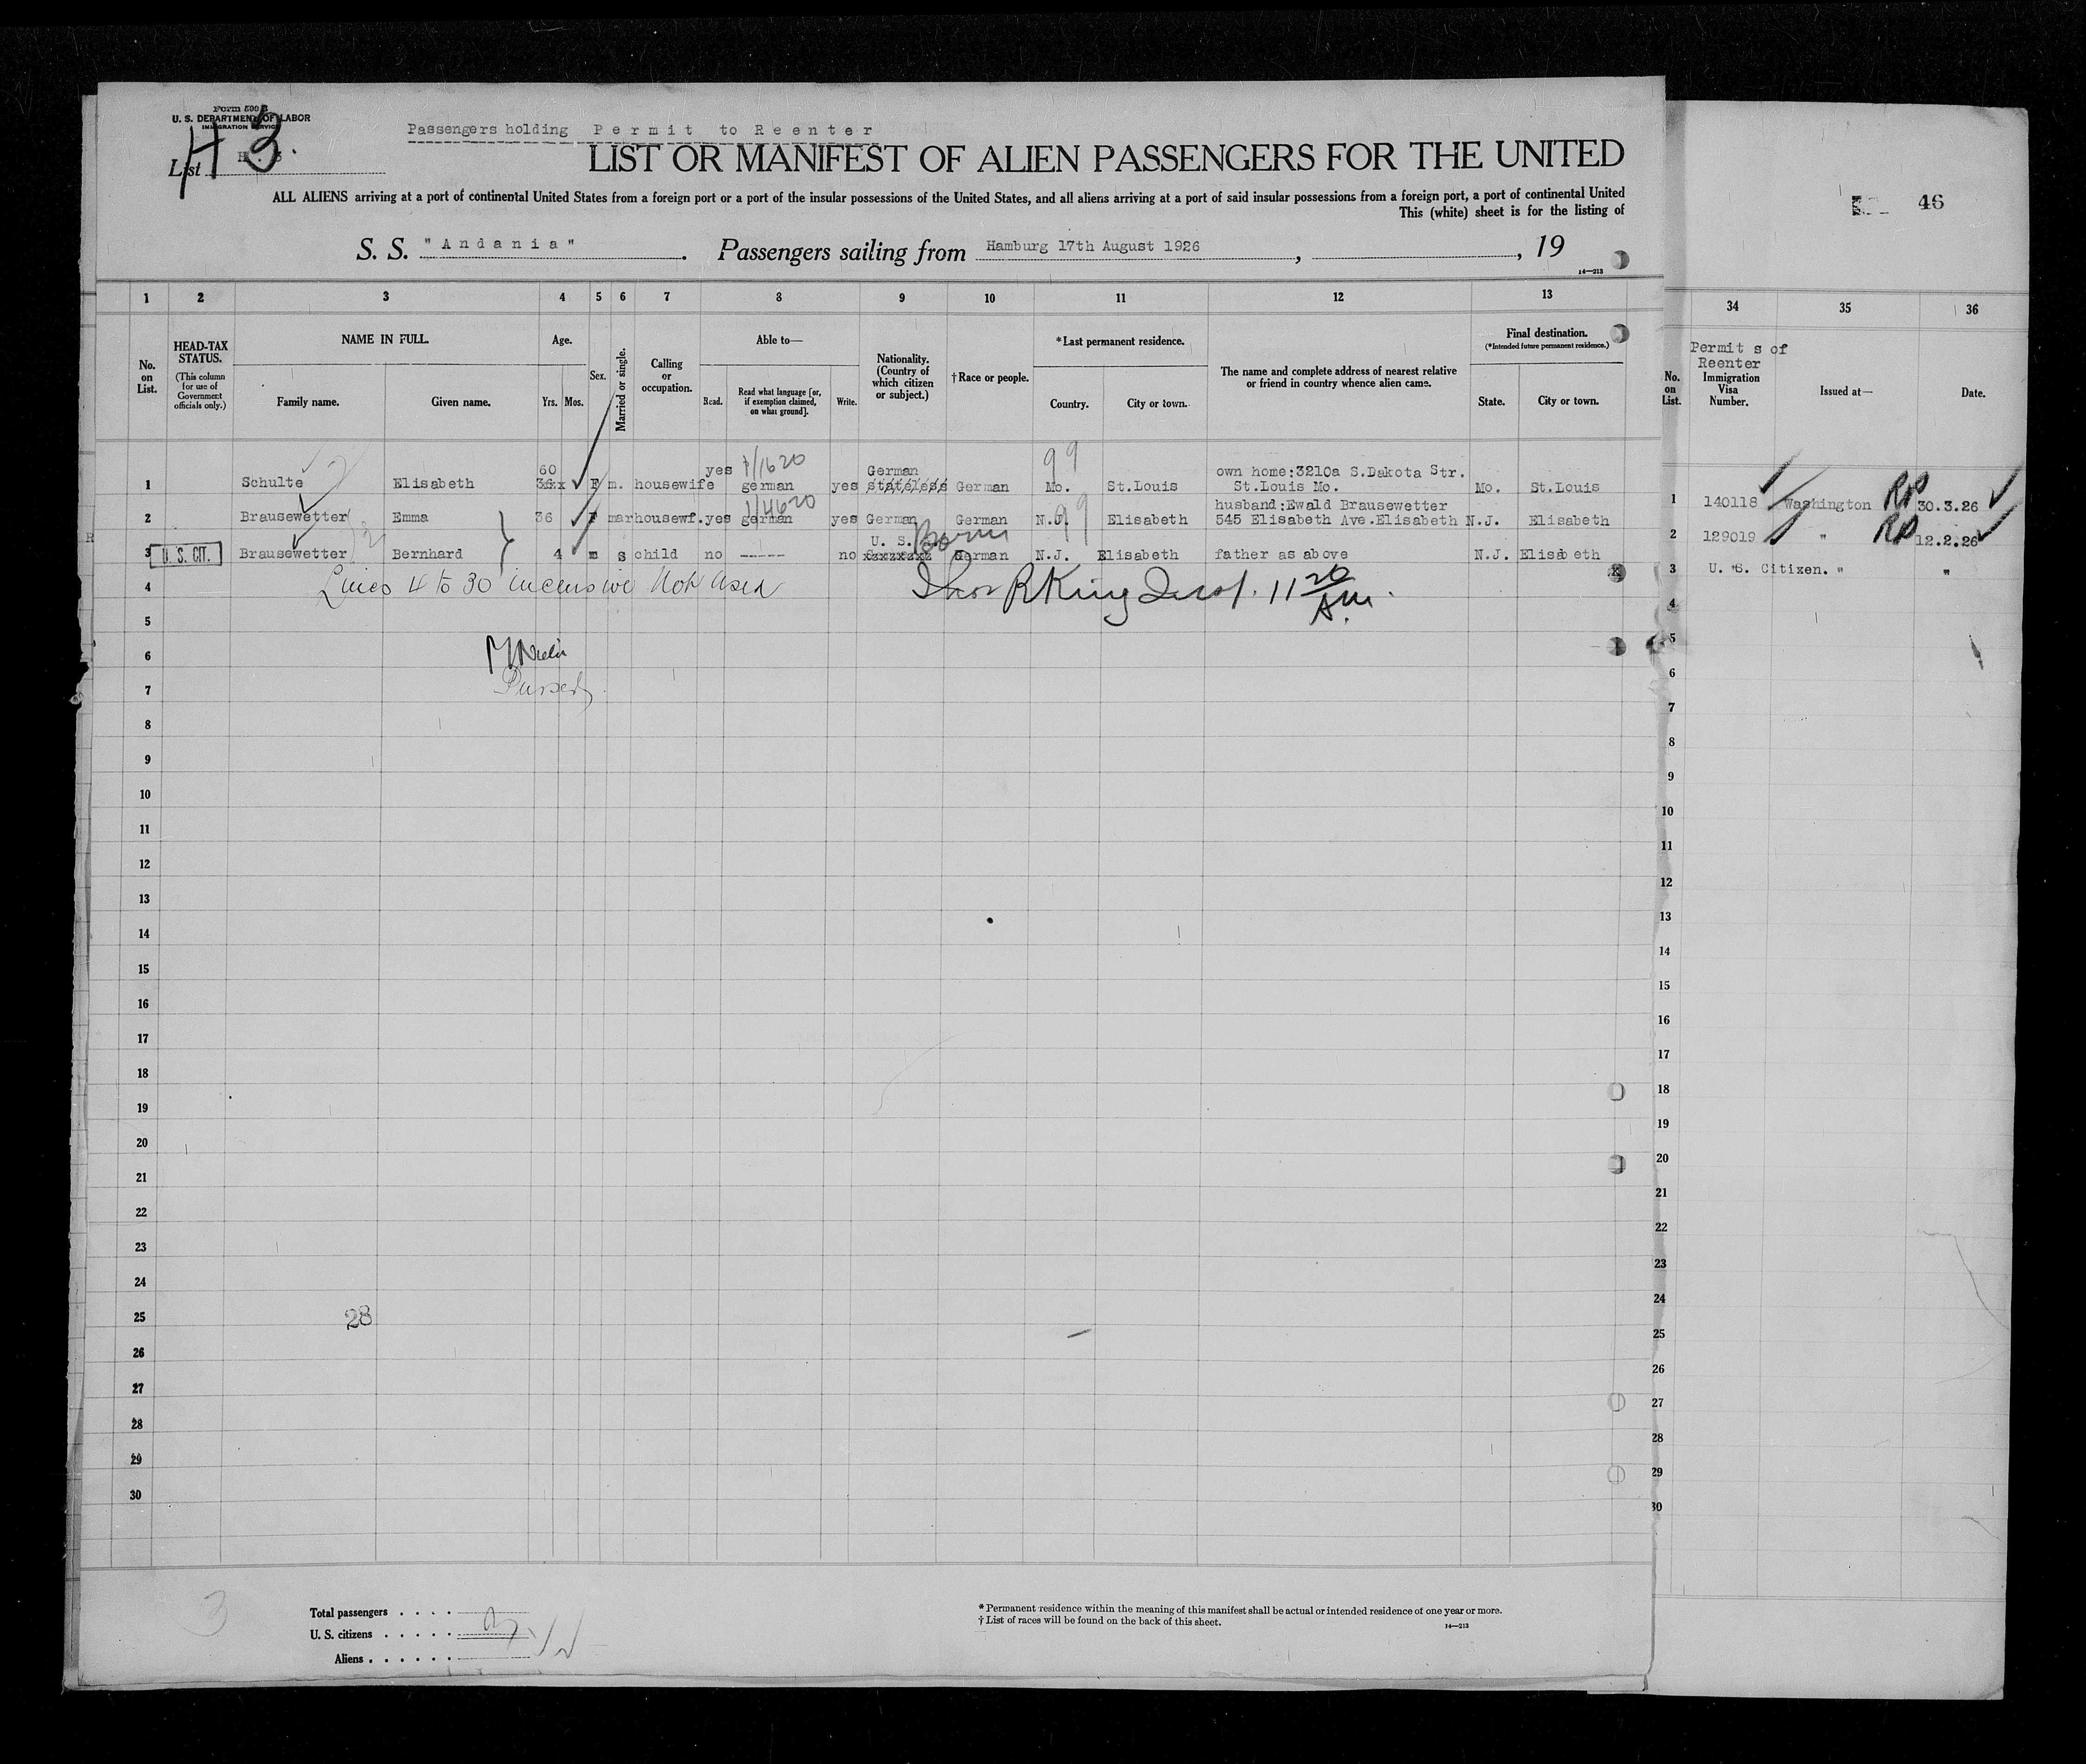 Form 500 B
U. S. DEPARTMENT OF LABOR
IMMIGRATION SERVICE
List H 3.
Passengers holding P e r m i t to R e e n t e r
LIST OR MANIFEST OF ALIEN PASSENGERS FOR THE UNITED
ALL ALIENS arriving at a port of continental United States from a foreign port or a port of the insular possessions of the United States, and all aliens arriving at a port of said insular possessions from a foreign port, a port of continental United
This (white) sheet is for the listing of
46
S. S. " A n d a n i a " . Passengers sailing from Hamburg 17th August 1926 , , 19
14—213
1 2 3 4 5 6 7 8 9 10 11 12 13 34 35 36
No. on List.
HEAD-TAX STATUS.
(This column for use of Government officials only.)
NAME IN FULL.
Family name. Given name.
Age.
Yrs. Mos.
Sex.
Married or single.
Calling or occupation.
Able to—
Read. Read what language [or, if exemption claimed, on what ground]. Write.
Nationality. (Country of which citizen or subject.)
†Race or people.
*Last permanent residence.
Country. City or town.
The name and complete address of nearest relative or friend in country whence alien came.
Final destination.
(*Intended future permanent residence.)
State. City or town.
No. on List.
Permit s of Reenter
Immigration Visa Number.
Issued at—
Date.
1 Schulte Elisabeth 60 F m. housewife yes german yes German stateless German Mo. St.Louis own home:3210a S.Dakota Str. St.Louis Mo. Mo. St.Louis 1 140118 Washington RP 30.3.26
99
2 Brausewetter Emma 36 F mar housewf. yes german yes German German N.J. Elisabeth husband:Ewald Brausewetter 545 Elisabeth Ave.Elisabeth N.J. Elisabeth 2 129019 " RP 12.2.26
99
3 U. S. CIT. Brausewetter Bernhard 4 m s child no ----- no U. S. Born German N.J. Elisabeth father as above N.J. Elisabeth 3 U. S. Citizen. " "
4 Lines 4 to 30 inclusive Not used
R King Insp. 11 20 AM.
4
5 5
6 6
7 Purser 7
8 8
9 9
10 10
11 11
12 12
13 13
14 14
15 15
16 16
17 17
18 18
19 19
20 20
21 21
22 22
23 23
24 24
25 28 25
26 26
27 27
28 28
29 29
30 30
3
Total passengers . . . .
U. S. citizens . . . . .
Aliens . . . . . .
* Permanent residence within the meaning of this manifest shall be actual or intended residence of one year or more.
† List of races will be found on the back of this sheet.
14—213